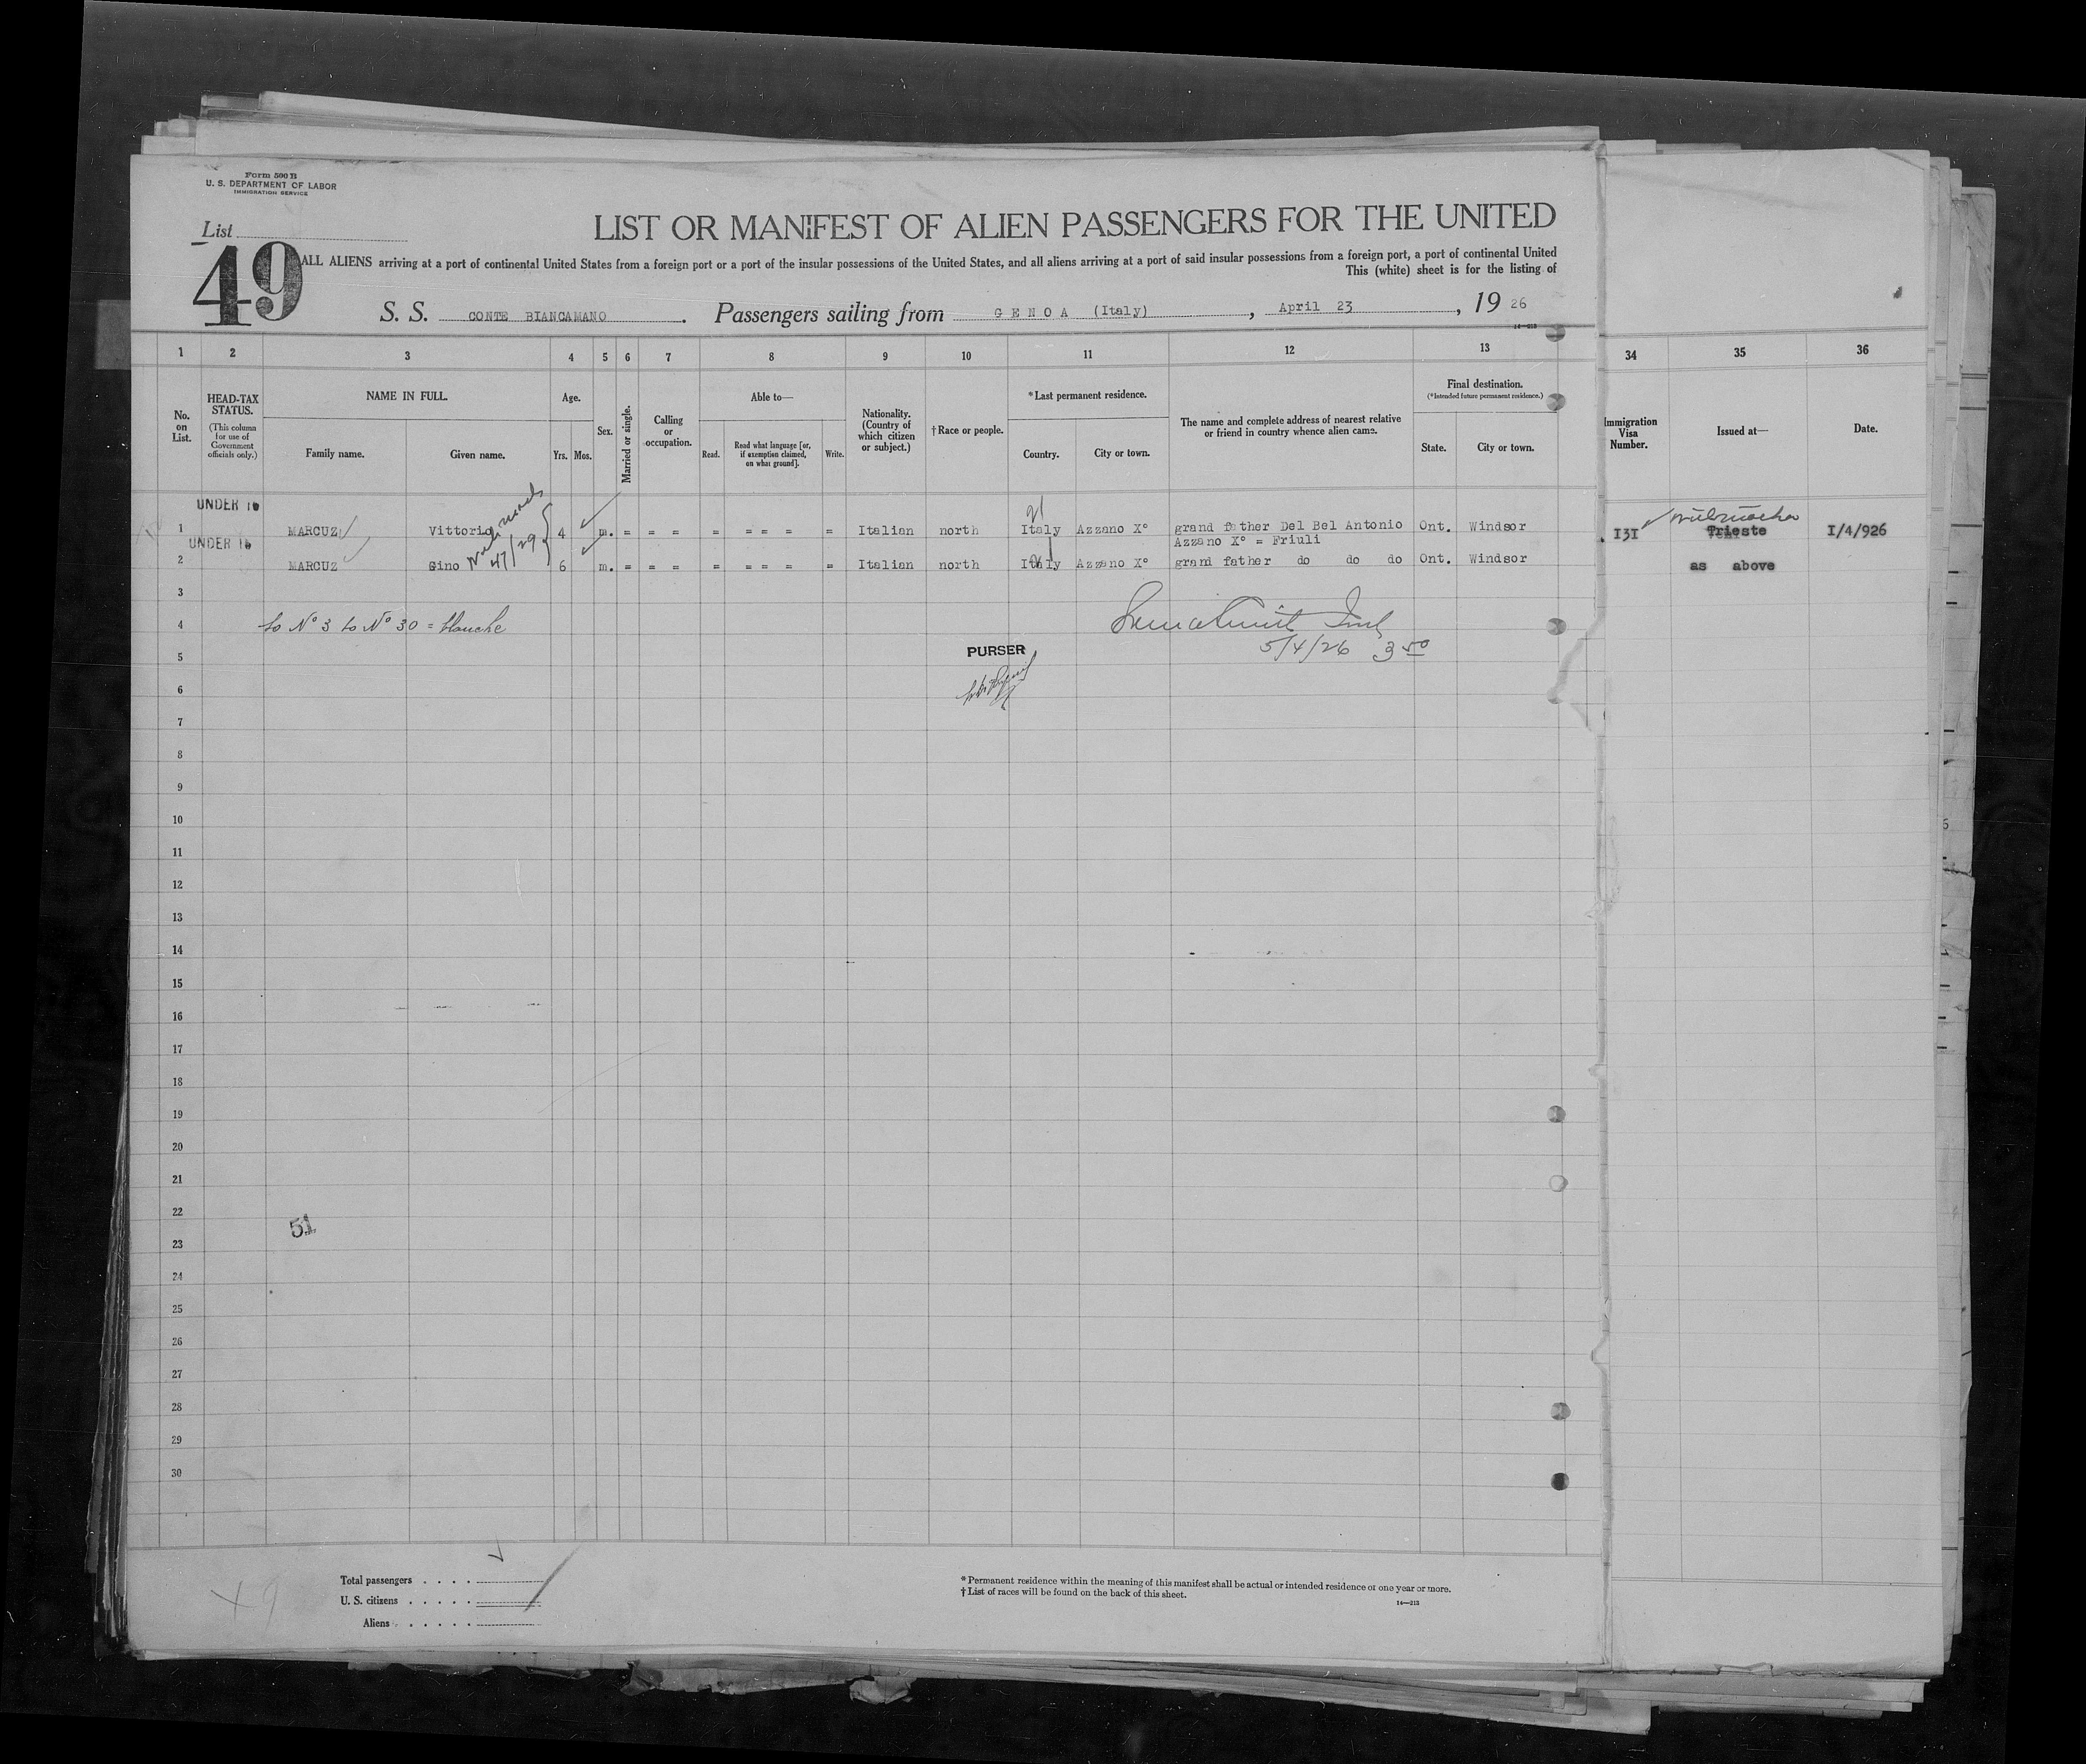 Form 500 B
U. S. DEPARTMENT OF LABOR
IMMIGRATION SERVICE
List
49
LIST OR MANIFEST OF ALIEN PASSENGERS FOR THE UNITED
ALL ALIENS arriving at a port of continental United States from a foreign port or a port of the insular possessions of the United States, and all aliens arriving at a port of said insular possessions from a foreign port, a port of continental United
This (white) sheet is for the listing of
S. S. CONTE BIANCAMANO. Passengers sailing from GENOA (Italy), April 23, 1926
14—213
1 2 3 4 5 6 7 8 9 10 11 12 13 34 35 36
No. on List.
HEAD-TAX STATUS.
(This column for use of Government officials only.)
NAME IN FULL.
Family name. Given name.
Age.
Yrs. Mos.
Sex.
Married or single.
Calling or occupation.
Able to—
Read. Read what language [or, if exemption claimed, on what ground]. Write.
Nationality. (Country of which citizen or subject.)
†Race or people.
*Last permanent residence.
Country. City or town.
The name and complete address of nearest relative or friend in country whence alien came.
Final destination.
(*Intended future permanent residence.)
State. City or town.
Immigration Visa Number.
Issued at—
Date.
UNDER 16
1 MARCUZ Vittorio 4 m. = = = = = = = = Italian north Italy Azzano X° grand father Del Bel Antonio Ont. Windsor 131 Trieste I/4/926
UNDER 16 Azzano X° = Friuli
2 MARCUZ Gino 6 m. = = = = = = = = Italian north Italy Azzano X° grand father do do do Ont. Windsor as above
4/7/29
3
4 to N° 3 to N° 30 = blanche
5 PURSER 5/4/26 3 50
6
7
8
9
10
11
12
13
14
15
16
17
18
19
20
21
22
51
23
24
25
26
27
28
29
30
49
Total passengers
U. S. citizens
Aliens
*Permanent residence within the meaning of this manifest shall be actual or intended residence of one year or more.
†List of races will be found on the back of this sheet.
14—213